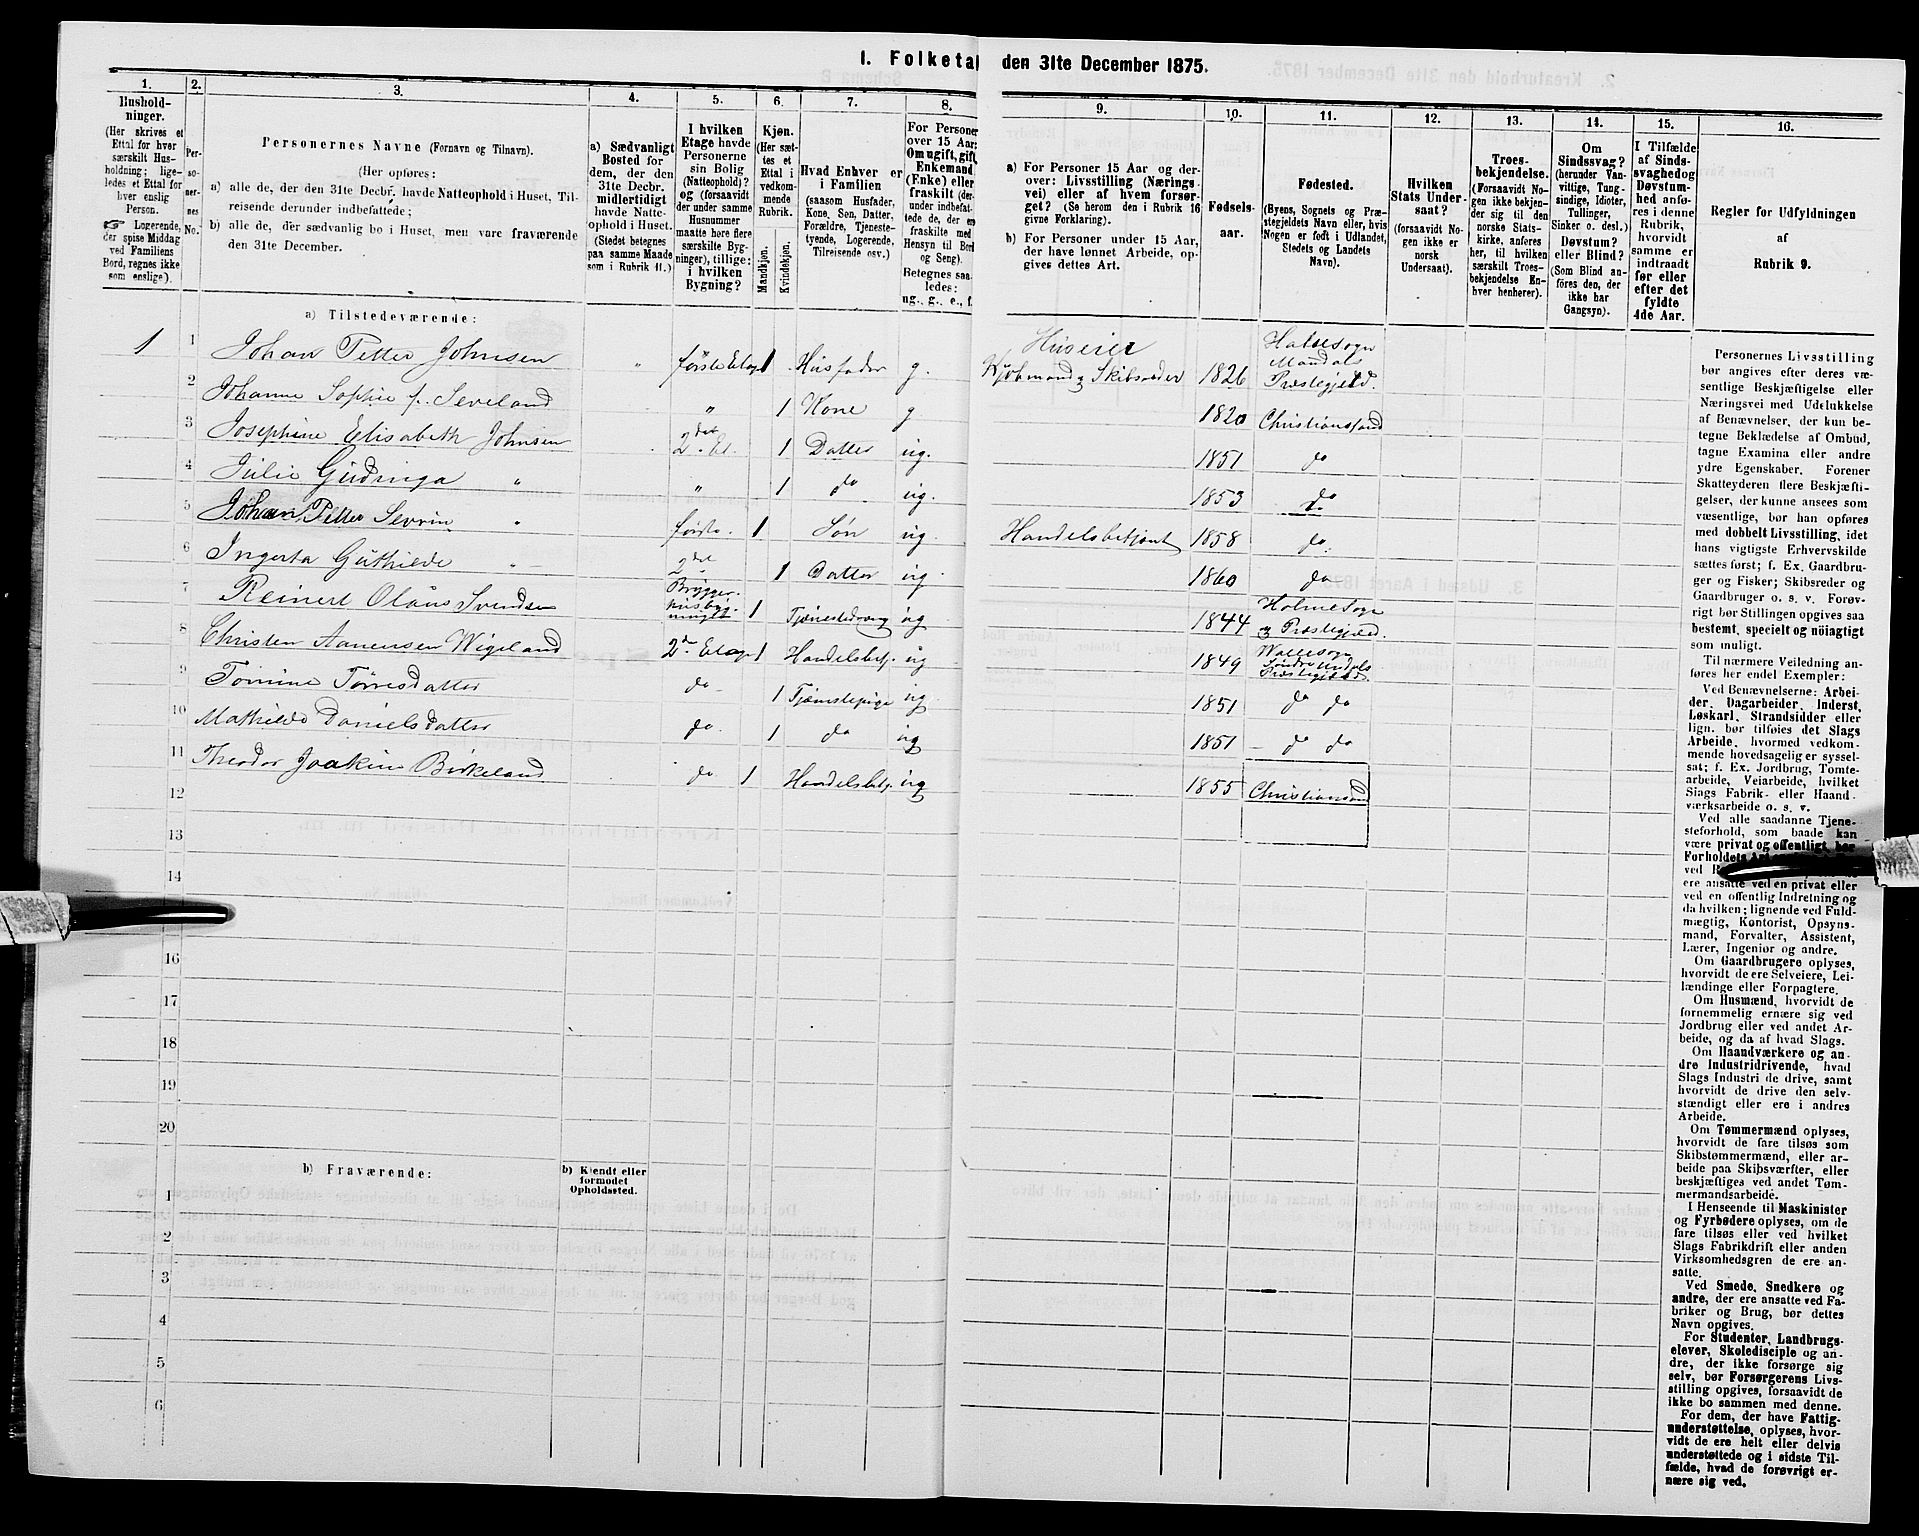 1. Folketal den 31te December 1875.
1.
Hushold-
ninger.
(Her skrives et
Ettal for hver
særskilt Hus-
holdning; lige-
ledes et Ettal for
hver enslig
Person.
☞ Logerende,
der spise Middag
ved Familiens
Bord, regnes ikke
som enslige).
2.
Per-
so-
ner-
nes
No.
3.
Personernes Navne (Fornavn og Tilnavn).
(Her opføres:
a) alle de, der den 31te Decbr. havde Natteophold i Huset, Til-
reisende derunder indbefattede;
b) alle de, der sædvanlig bo i Huset, men vare fraværende
den 31te December.
4.
a) Sædvanligt
Bosted for
dem, der den
31te Decbr.
midlertidigt
havde Natte-
ophold i Huset.
(Stedet betegnes
paa samme Maade
som i Rubrik 11.)
5.
I hvilken
Etage havde
Personerne
sin Bolig
(Natteophold)?
og (forsaavidt
der under samme
Husnummer
maatte høre flere
særskilte Byg-
ninger), tillige:
i hvilken
Bygning?
6.
Kjøn.
(Her sæt-
tes et
Ettal i
vedkom-
mende
Rubrik.
Mandkjøn.
Kvindekjøn.
7.
Hvad Enhver er
i Familien
(saasom Husfader,
Kone, Søn, Datter,
Forældre, Tjeneste-
tyende, Logerende,
Tilreisende osv.)
8.
For Personer
over 15 Aar:
Om ugift, gift,
Enkemand
(Enke) eller
fraskilt (der-
under indbefat-
tede de, der ere
fraskilte med
Hensyn til Bord
og Seng).
Betegnes saa-
ledes:
ug., g., e., f.
9.
a) For Personer 15 Aar og der-
over: Livsstilling (Nærings-
vei) eller af hvem forsør-
get? (Se herom den i Rubrik 16
givne Forklaring).
b) For Personer under 15 Aar,
der have lønnet Arbeide, op-
gives dettes Art.
10.
Fødsels-
aar.
11.
Fødested.
(Byens, Sognets og Præ-
stegjeldets Navn eller, hvis
Nogen er født i Udlandet,
Stedets og Landets
Navn).
12.
Hvilken
Stats Under-
saat?
(forsaavidt No-
gen ikke er
norsk
Undersaat).
13.
Troes-
bekjendelse.
(Forsaavidt No-
gen ikke bekjen-
der sig til den
norske Stats-
kirke, anføres
her, til hvilken
særskilt Troes-
bekjendelse En-
hver henhører).
14.
Om
Sindssvag?
(herunder Van-
vittige, Tung-
sindige, Idioter,
Tullinger,
Sinker o. desl.)
Døvstum?
eller Blind?
(Som Blind an-
føres den, der
ikke har
Gangsyn).
15.
I Tilfælde
af Sinds-
svaghed og
Døvstum-
hed anfø-
res i denne
Rubrik,
hvorvidt
samme er
indtraadt
før eller
efter det
fyldte
4de Aar.
16.
Regler for Udfyldningen
af
Rubrik 9.
a) Tilstedeværende:
1 1 Johan Petter Johnsen " første Etage 1 Husfader g. Huseier Kjøbmand og Skibsreder 1826 Halsesogn Mandals Præstegjeld.
2 Johanne Sophie f. Seveland " 1 Kone g 1820 Christianssand
3 Josephine Elisabeth Johnsen 2det Et. 1 Datter ug. 1851 do
4 Julie Gudringa " " 1 do ug. 1853 do
5 Johan Petter Sevrin " første. 1 Søn ug. Handelsbetjent 1858 do.
6 Ingerta Guthilde " 2det 1 Datter ug. 1860 do
7 Reinert Olaus Svendsen Bryggerhusbygningen 1 Tjenestedreng ug 1844 Holme Sogn og Præstegjeld.
8 Christen Aanensen Wigeland 2den Etage 1 Handelsbetj. ug 1849 Wallesogn Søndre Undals Præstegjeld.
9 Tomine Torresdatter do 1 Tjenestepige ug. 1851 do do
10 Mathilde Danielsdatter do. 1 do ug 1851 – do do
11 Theodor Joakim Birkeland do 1 Handelsbetj. ug 1855 Christianssand
12
13
14
16
17
18
19
20
b) Fraværende:
b) Kjendt eller
formodet
Opholdssted.
1
2
3
4
5
6
Personernes Livsstilling
bør angives efter deres væ-
sentlige Beskjæftigelse eller
Næringsvei med Udelukkelse
af Benævnelser, der kun be-
tegne Beklædelse af Ombud,
tagne Examina eller andre
ydre Egenskaber. Forener
Skatteyderen flere Beskjæfti-
gelser, der kunne ansees som
væsentlige, bør han opføres
med dobbelt Livsstilling, idet
hans vigtigste Erhvervskilde
sættes først; f. Ex. Gaardbru-
ger og Fisker; Skibsreder og
Gaardbruger o. s. v. Forøv-
rigt bør Stillingen opgives saa
bestemt, specielt og nøiagtigt
som muligt.
Til nærmere Veiledning an-
føres her endel Exempler:
Ved Benævnelserne: Arbei-
der, Dagarbeider, Inderst,
Løskarl, Strandsidder eller
lign. bør tilføies det Slags
Arbeide, hvormed vedkom-
mende hovedsagelig er syssel-
sat; f. Ex. Jordbrug, Tomte-
arbeide, Veiarbeide, hvilket
Slags Fabrik- eller Haand-
værksarbeide o. s. v.
Ved alle saadanne Tjene-
steforhold, som baade kan
være privat og offentligt, bør
Forholdets Art
ved
ere ansatte ved en privat eller
ved en offentlig Indretning og
da hvilken; lignende ved Fuld-
mægtig, Kontorist, Opsyns-
mand, Forvalter, Assistent,
Lærer, Ingeniør og andre.
Om Gaardbrugere oplyses,
hvorvidt de ere Selveiere, Lei-
lændinge eller Forpagtere.
Om Husmænd, hvorvidt de
fornemmelig ernære sig ved
Jordbrug eller ved andet Ar-
beide, og da af hvad Slags.
Om Haandværkere og an-
dre Industridrivende, hvad
Slags Industri de drive, samt
hvorvidt de drive den selv-
stændigt eller ere i andres
Arbeide.
Om Tømmermænd oplyses,
hvorvidt de fare tilsøs som
Skibstømmermænd, eller ar-
beide paa Skibsværfter, eller
beskjæftiges ved andet Tøm-
mermandsarbeide.
I Henseende til Maskinister
og Fyrbødere oplyses, om de
fare tilsøs eller ved hvilket
Slags Fabrikdrift eller anden
Virksomhedsgren de ere an-
satte.
Ved Smede, Snedkere og
andre, der ere ansatte ved Fa-
briker og Brug, bør dettes
Navn opgives.
For Studenter, Landbrugs-
elever, Skoledisciple og an-
dre, der ikke forsørge sig
selv, bør Forsørgerens Livs-
stilling opgives, forsaavidt de
ikke bo sammen med denne.
For dem, der have Fattig-
understøttelse, oplyses, hvor-
vidt de ere helt eller delvis
understøttede og i sidste Til-
fælde, hvad de forøvrigt er-
nære sig ved.